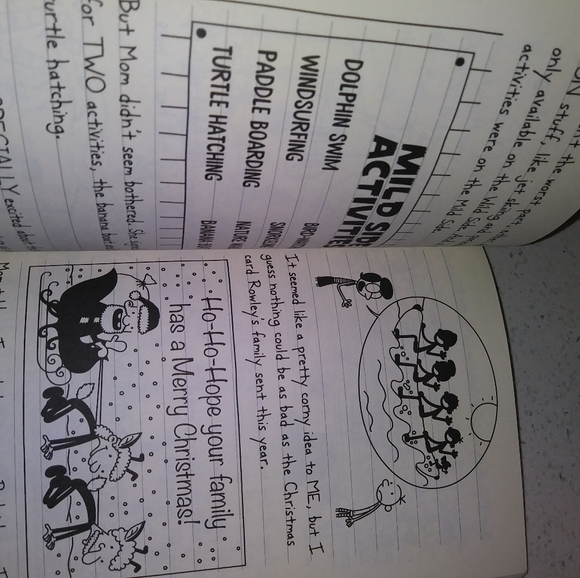 only
stuff, like jet skiing
only available on the Wild Side
activities were on the Mild Side
MILD SIDE
ACTIVITIES
DOLPHIN SWIM
WINDSURFING
PADDLE BOARDING
TURTLE HATCHING
But Mom didn't seem bothered. She
for TWO activities, the banana boat
turtle hatching.
ESPECIALLY excited about
It seemed like a pretty corny idea to ME, but I
guess nothing could be as bad as the Christmas
card Rowley's family sent this year.
Ho-Ho-Hope your family
has a Merry Christmas!